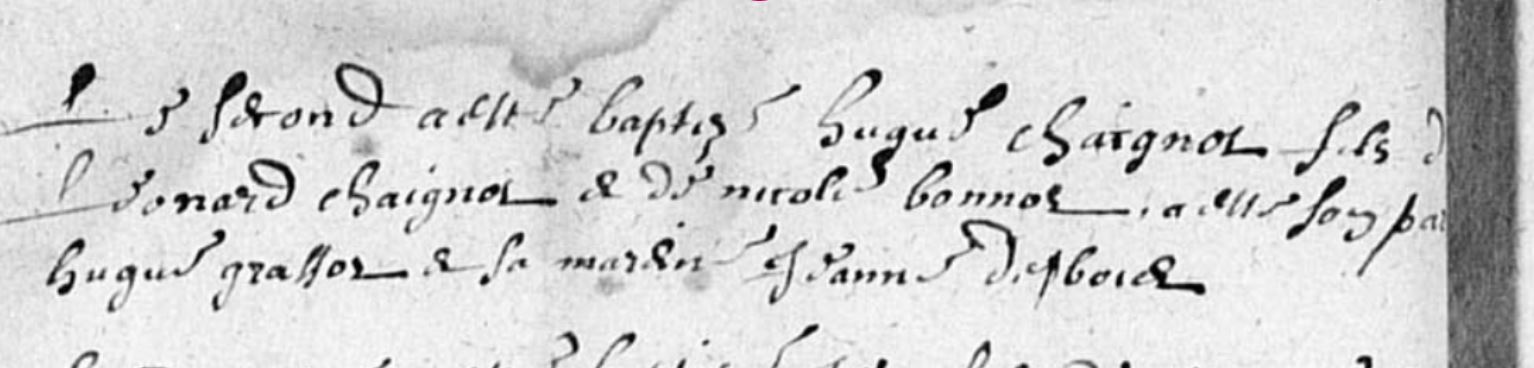 Le second a esté baptizé hugue chaignot fils d
Leonard chaignot & de nicole bonnot, a esté son par
hugue grassot & sa marene Jeanne